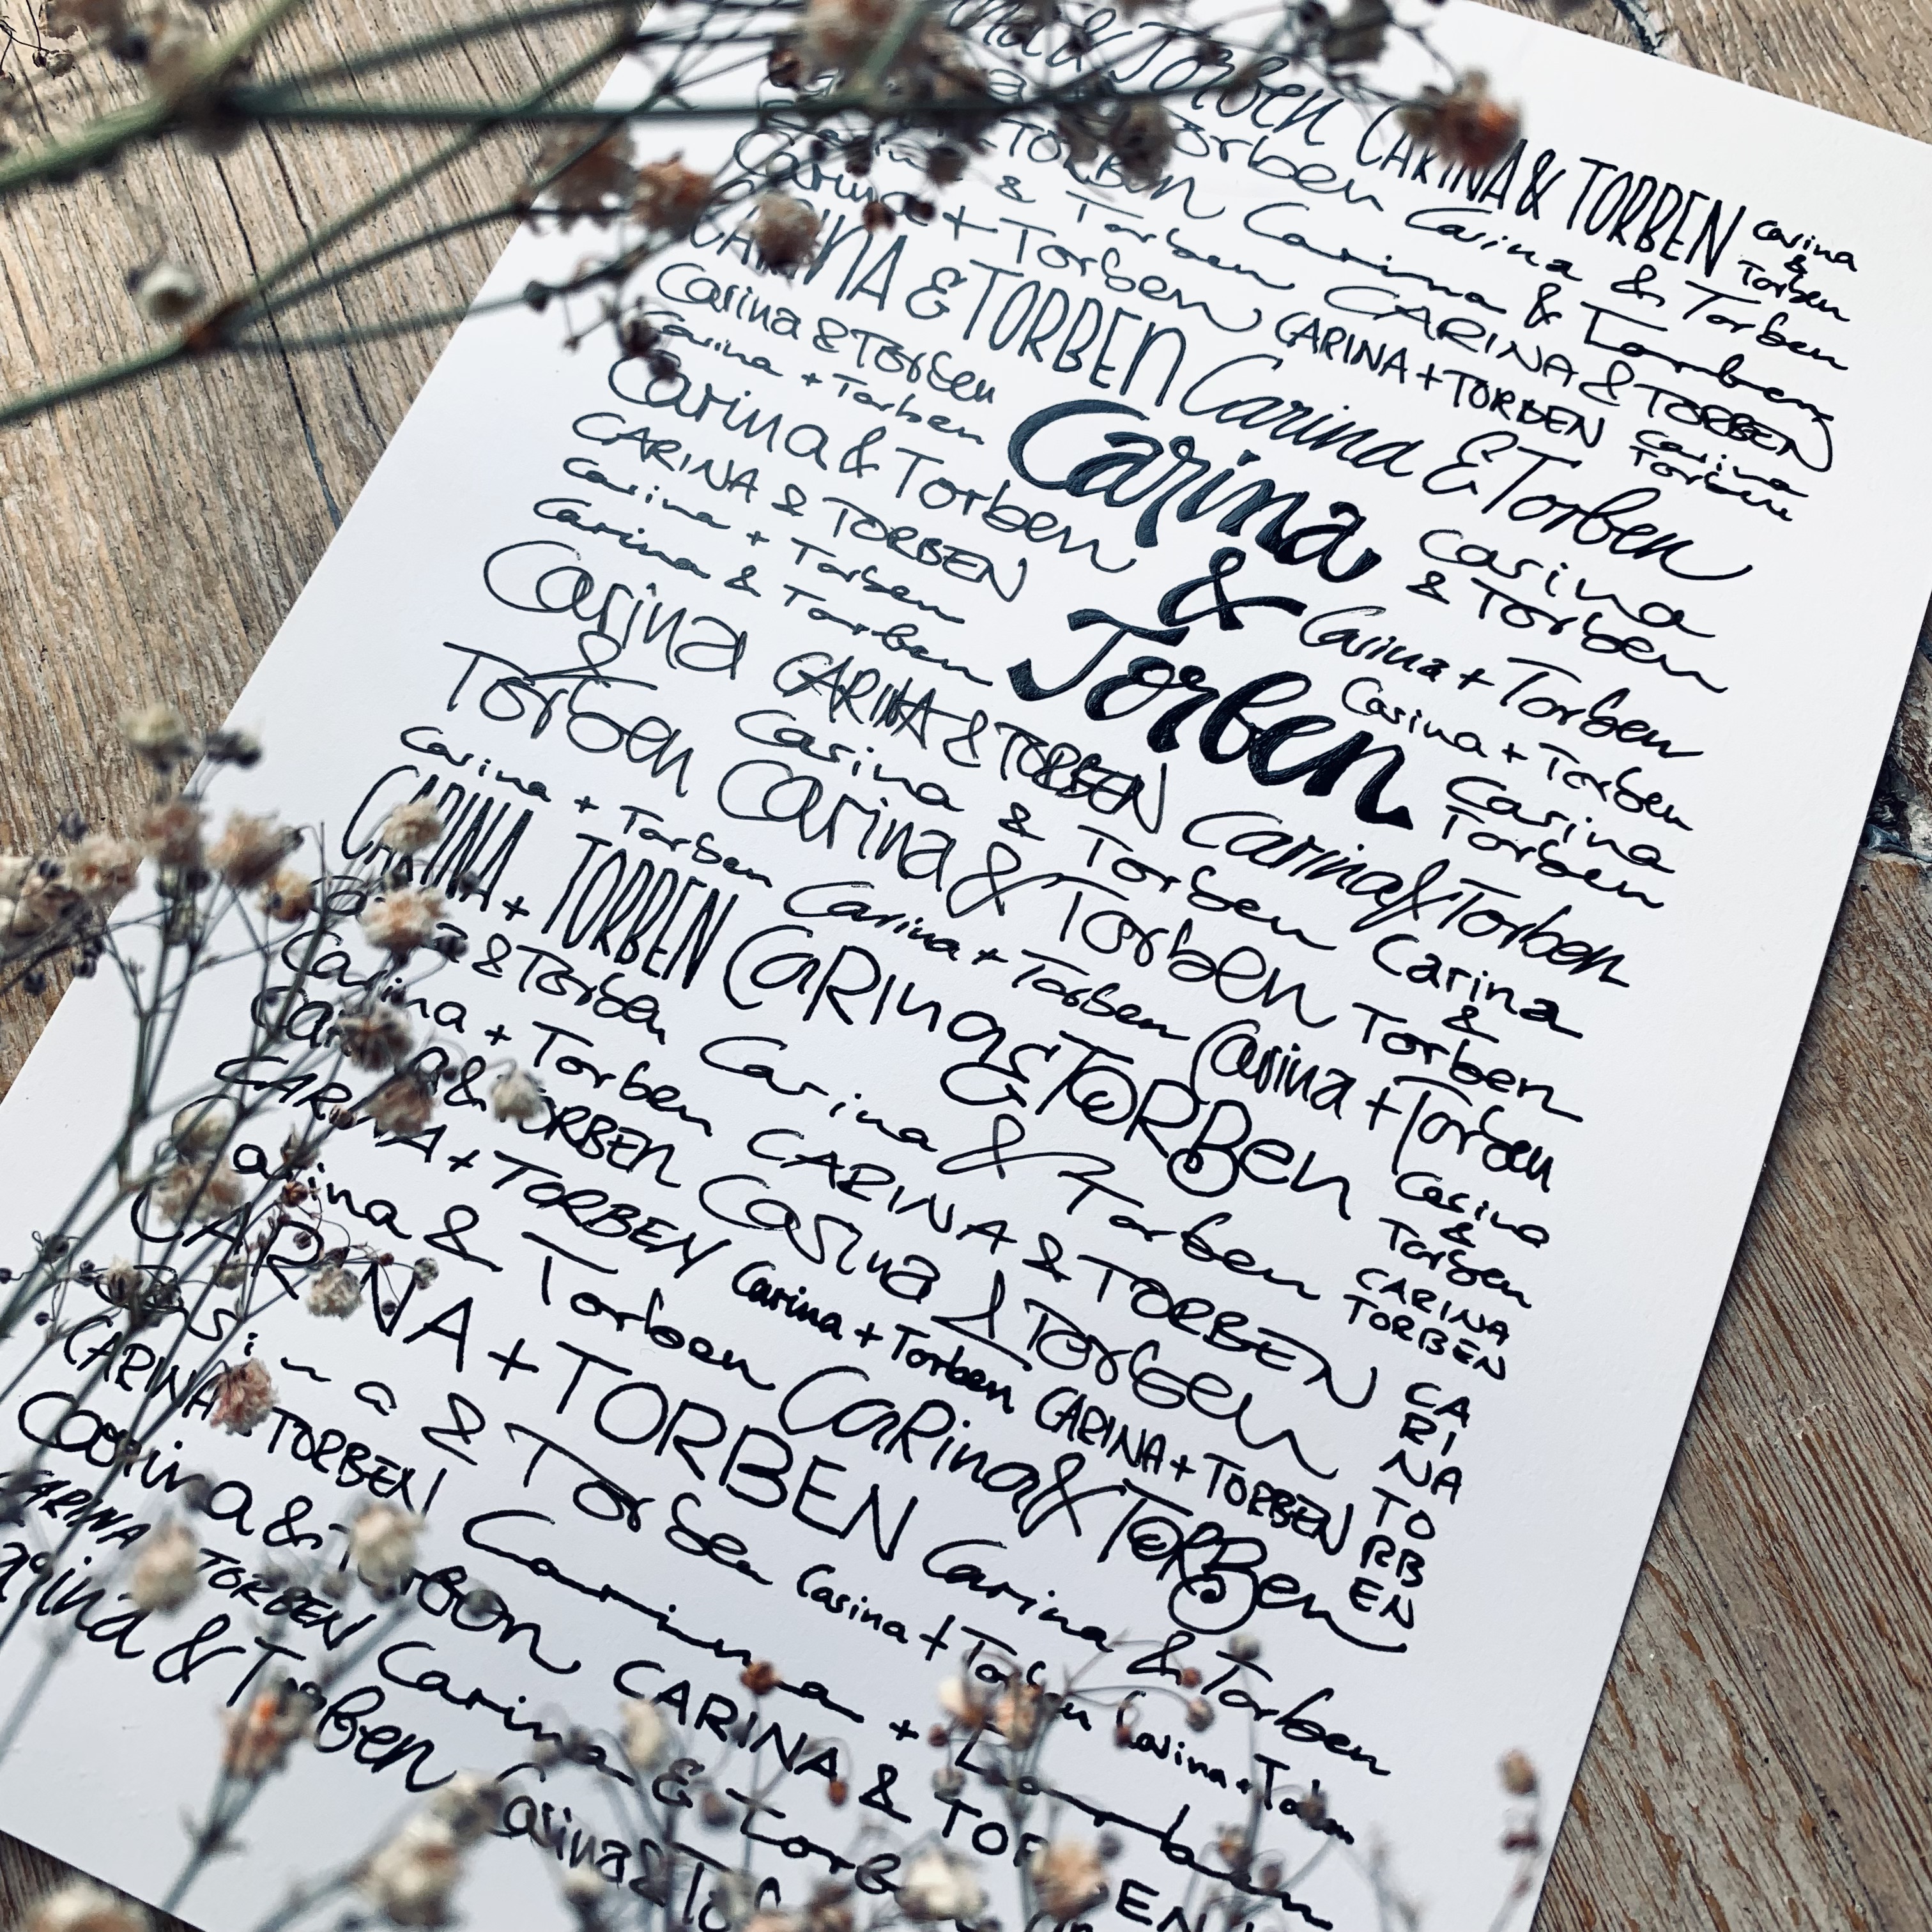 & Torben CARINA & TORBEN Carina & Torben
Torben Carina & Torben
TORBEN Carina & Torben
& Torben CARINA & TORBEN
Carina + Torben CARINA + TORBEN Carina Torben
CARINA & TORBEN Carina & Torben
Carina & Torben
Carina + Torben
Carina & Torben
CARINA & TORBEN
Carina + Torben
Carina & Torben
Carina
&
Torben
Carina
& Torben
Carina + Torben
Carina + Torben
Carina
Torben
Carina
&
Torben
CARINA & TORBEN Carina & Torben
Carina & Torben
Carina
&
Torben
Carina & Torben
Carina + Torben Carina + Torben Carina + Torben
CARINA + TORBEN CaRina & ToRBen
Carina
&
Torben
& Torben Carina & Torben
CARINA
TORBEN
Carina + Torben CARINA & TORBEN
& TORBEN Carina & Torben
CARINA + TORBEN Carina + Torben CARINA + TORBEN
CA
RI
NA
TO
RB
EN
Carina & Torben CaRina & ToRBen
CARINA + TORBEN Carina & Torben
Carina & Torben Carina + Torben Carina + Torben
CARINA TORBEN Carina + Torben
Carina & Torben CARINA & TORBEN
CARINA TORBEN Carina &
Carina & Torben Carina &